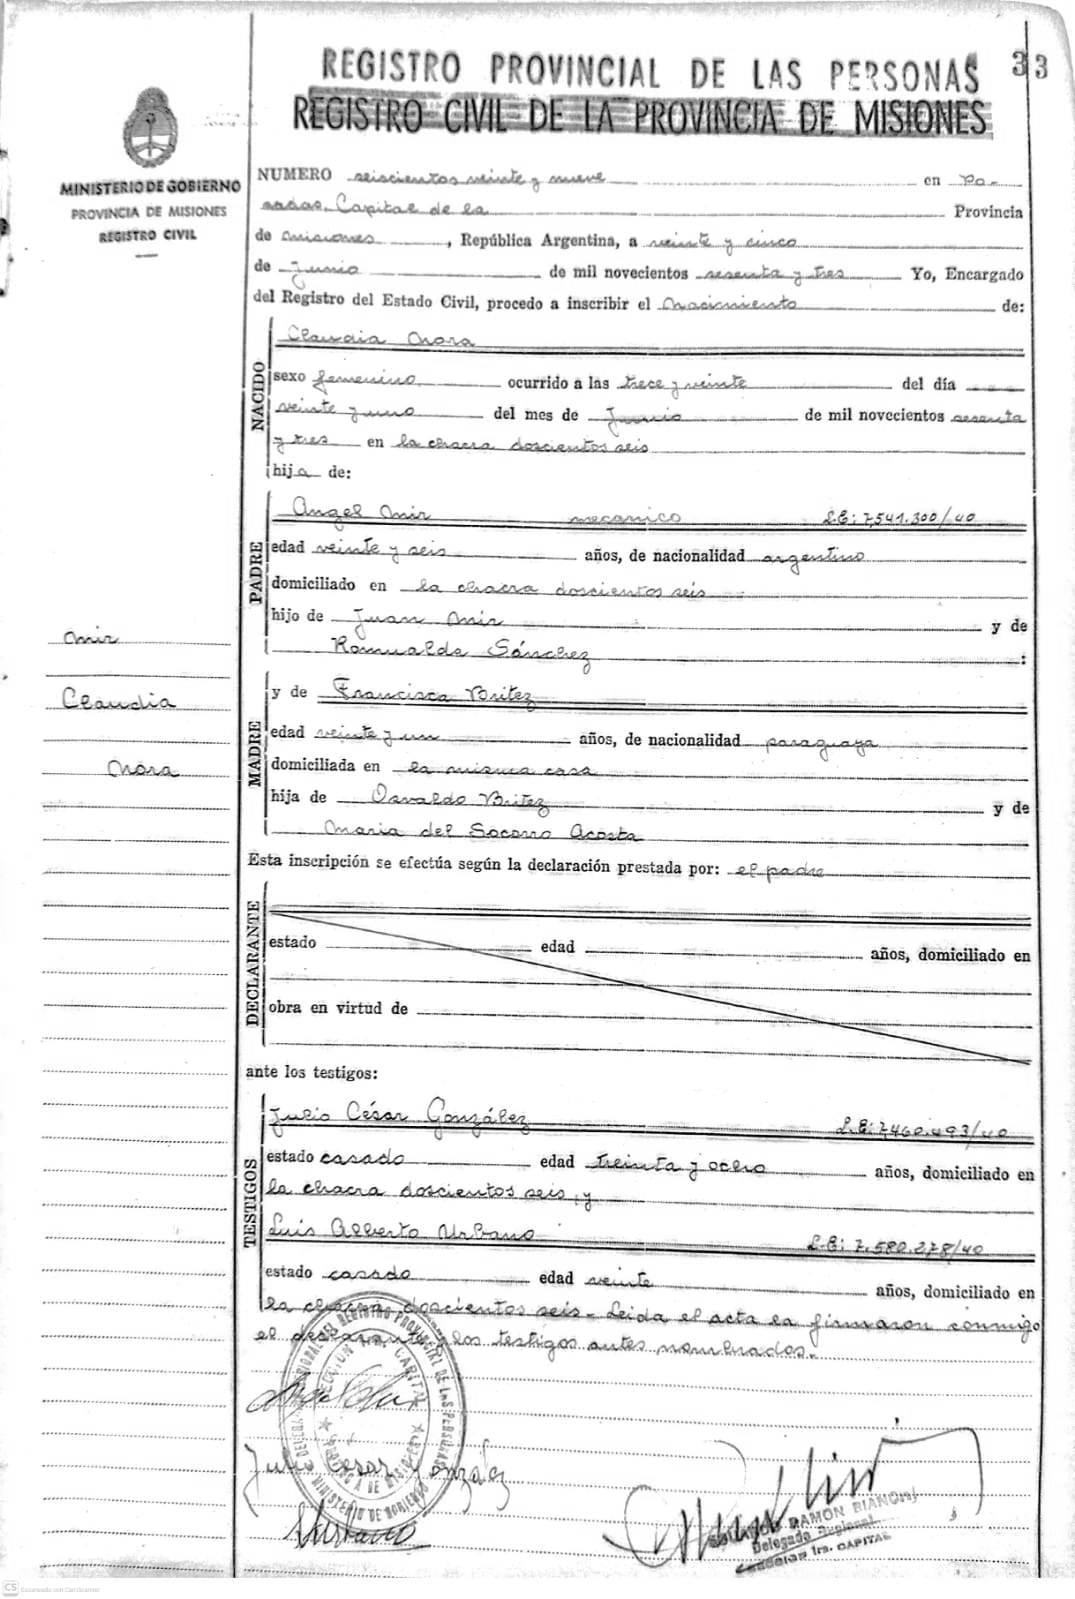 REGISTRO PROVINCIAL DE LAS PERSONAS
33
REGISTRO CIVIL DE LA PROVINCIA DE MISIONES
MINISTERIO DE GOBIERNO
PROVINCIA DE MISIONES
REGISTRO CIVIL
NUMERO seiscientos veinte y nueve en Po-
sadas, Capital de la Provincia
de Misiones, República Argentina, a veinte y cinco
de junio de mil novecientos sesenta y tres Yo, Encargado
del Registro del Estado Civil, procedo a inscribir el Nacimiento de:
NACIDO
Claudia Nora
sexo femenino ocurrido a las trece y veinte del día
veinte y uno del mes de Junio de mil novecientos sesenta
y tres en la chacra doscientos seis
hija de:
PADRE
Angel Mir mecanico L.E: 7,541.300/40
edad veinte y seis años, de nacionalidad argentino
domiciliado en la chacra doscientos seis
hijo de Juan Mir y de
Romualda Sánchez :
Mir
Claudia
Nora
MADRE
y de Francisca Britez
edad veinte y un años, de nacionalidad paraguaya
domiciliada en la misma casa
hija de Osvaldo Britez y de
Maria del Socorro Acosta
Esta inscripción se efectúa según la declaración prestada por: el padre
DECLARANTE
estado edad años, domiciliado en
obra en virtud de
ante los testigos:
TESTIGOS
Julio César González L.E: 7,460.493/40
estado casado edad treinta y ocho años, domiciliado en
la chacra doscientos seis, y
Luis Alberto Urbano L.E: 7.580.278/40
estado casado edad veinte años, domiciliado en
la chacra doscientos seis.- Leida el acta la firmaron conmigo
el declarante y los testigos antes nombrados.-
Julio Cesar Gonzalez
RAMON BIANCHI
Delegado Regional
SECCION 1ra. CAPITAL
CS Escaneado con CamScanner